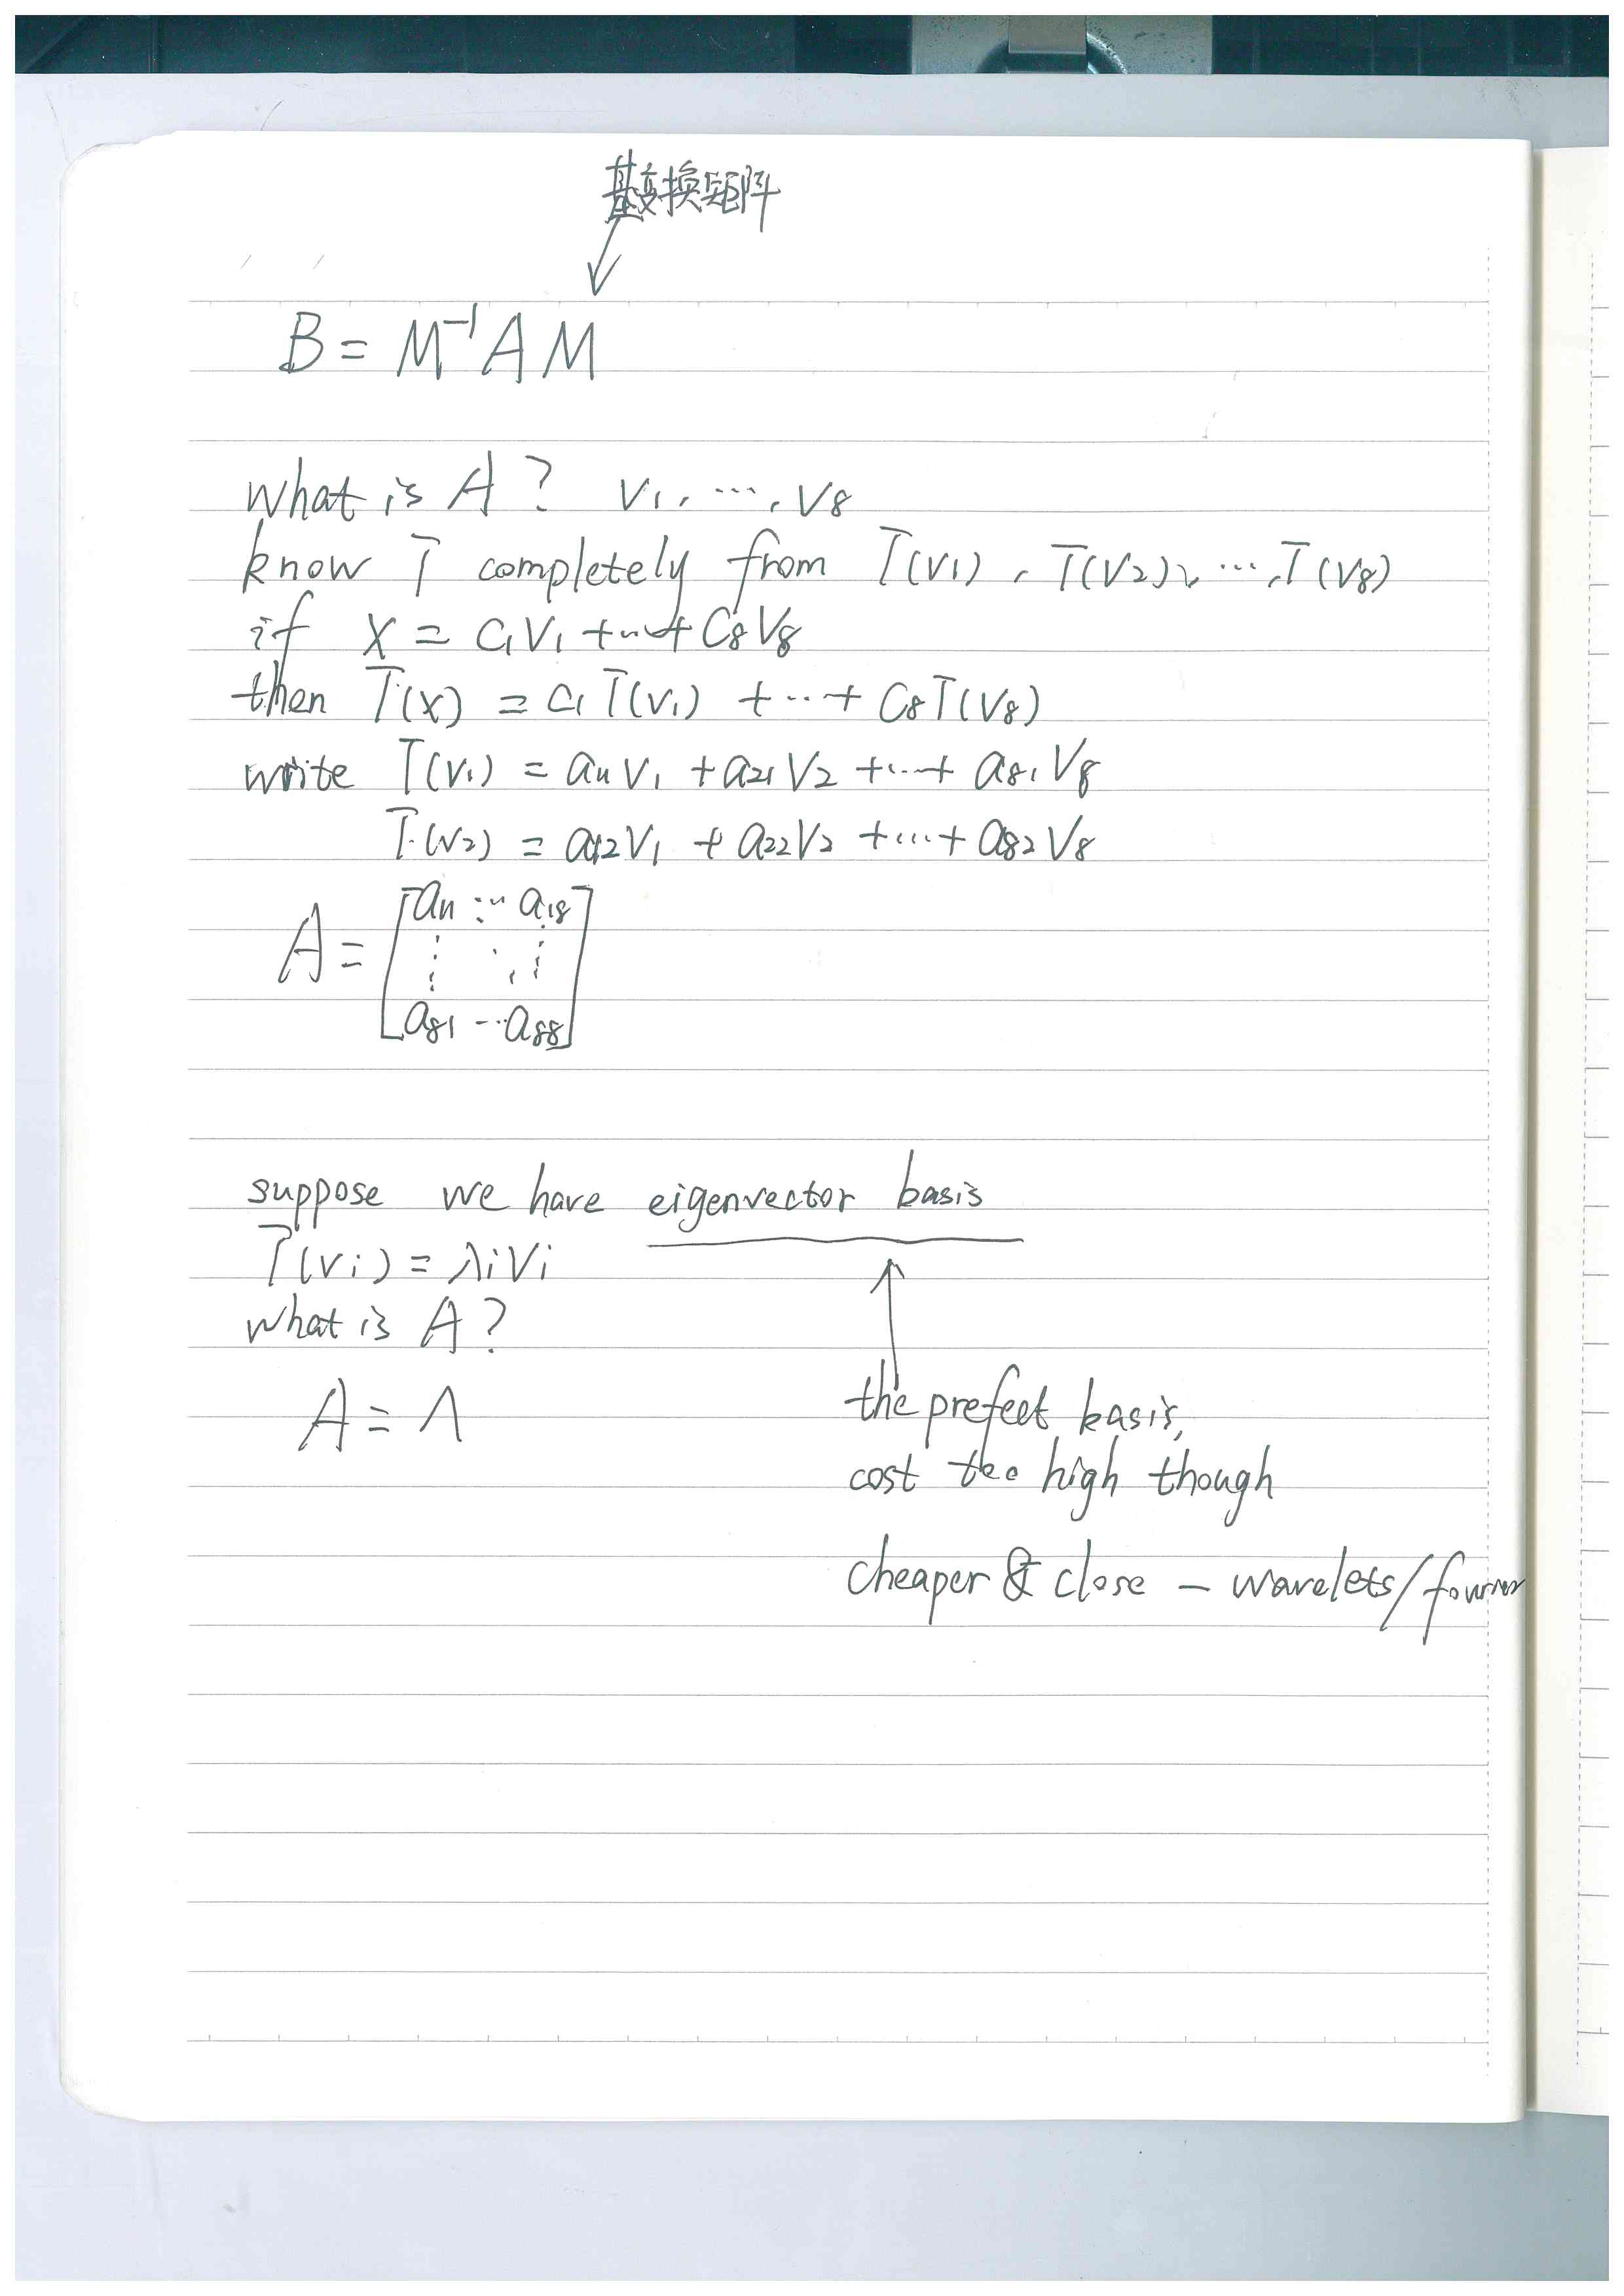 基变换矩阵
B = M⁻¹AM
what is A ? v₁, ..., v₈
know T completely from T(v₁), T(v₂), ..., T(v₈)
if x = c₁v₁ + ... + c₈v₈
then T(x) = c₁T(v₁) + ... + c₈T(v₈)
write T(v₁) = a₁₁v₁ + a₂₁v₂ + ... + a₈₁v₈
T(v₂) = a₁₂v₁ + a₂₂v₂ + ... + a₈₂v₈
A = [a₁₁ ... a₁₈
⋮ ⋱ ⋮
a₈₁ ... a₈₈]
suppose we have eigenvector basis
T(vᵢ) = λᵢvᵢ
what is A ?
A = Λ
the prefect basis,
cost too high though
cheaper & close – wavelets/fourier